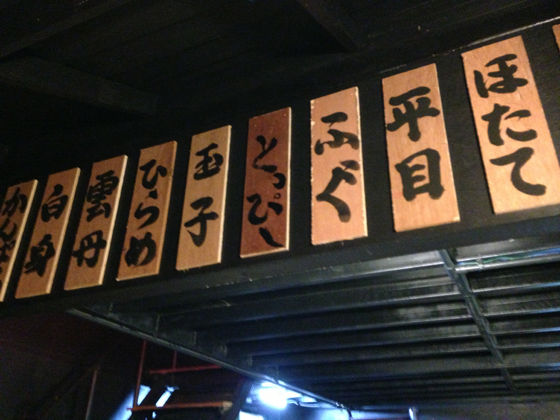 ほたて
平目
ふぐ
とっぴー
玉子
ひらめ
雲丹
白身